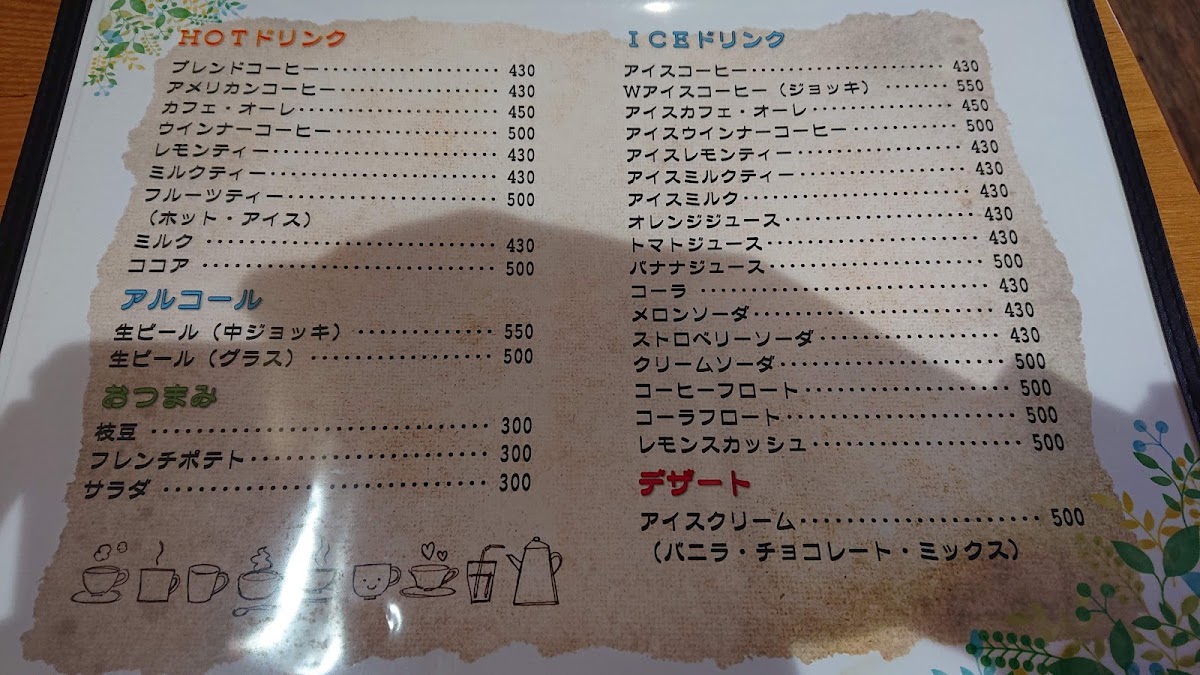 HOTドリンク
ブレンドコーヒー・・・・・・・・・・・・・・・・・・・・430
アメリカンコーヒー・・・・・・・・・・・・・・・・・・430
カフェ・オーレ・・・・・・・・・・・・・・・・・・・・・450
ウインナーコーヒー・・・・・・・・・・・・・・・・・・500
レモンティー・・・・・・・・・・・・・・・・・・・・・・430
ミルクティー・・・・・・・・・・・・・・・・・・・・・・430
フルーツティー・・・・・・・・・・・・・・・・・・・・・500
（ホット・アイス）
ミルク・・・・・・・・・・・・・・・・・・・・・・・・・430
ココア・・・・・・・・・・・・・・・・・・・・・・・・・500
アルコール
生ビール（中ジョッキ）・・・・・・・・・・・・550
生ビール（グラス）・・・・・・・・・・・・・・・500
おつまみ
枝豆・・・・・・・・・・・・・・・・・・・・・・・・・・300
フレンチポテト・・・・・・・・・・・・・・・・・・・・300
サラダ・・・・・・・・・・・・・・・・・・・・・・・・・300
ICEドリンク
アイスコーヒー・・・・・・・・・・・・・・・・・・・・430
Wアイスコーヒー（ジョッキ）・・・・・・・550
アイスカフェ・オーレ・・・・・・・・・・・・・・450
アイスウインナーコーヒー・・・・・・・・・・・500
アイスレモンティー・・・・・・・・・・・・・・・・430
アイスミルクティー・・・・・・・・・・・・・・・・430
アイスミルク・・・・・・・・・・・・・・・・・・・・・430
オレンジジュース・・・・・・・・・・・・・・・・・・430
トマトジュース・・・・・・・・・・・・・・・・・・・・430
バナナジュース・・・・・・・・・・・・・・・・・・・・500
コーラ・・・・・・・・・・・・・・・・・・・・・・・・・430
メロンソーダ・・・・・・・・・・・・・・・・・・・・・430
ストロベリーソーダ・・・・・・・・・・・・・・・・430
クリームソーダ・・・・・・・・・・・・・・・・・・・・500
コーヒーフロート・・・・・・・・・・・・・・・・・・500
コーラフロート・・・・・・・・・・・・・・・・・・・・500
レモンスカッシュ・・・・・・・・・・・・・・・・・・500
デザート
アイスクリーム・・・・・・・・・・・・・・・・・・・・500
（バニラ・チョコレート・ミックス）